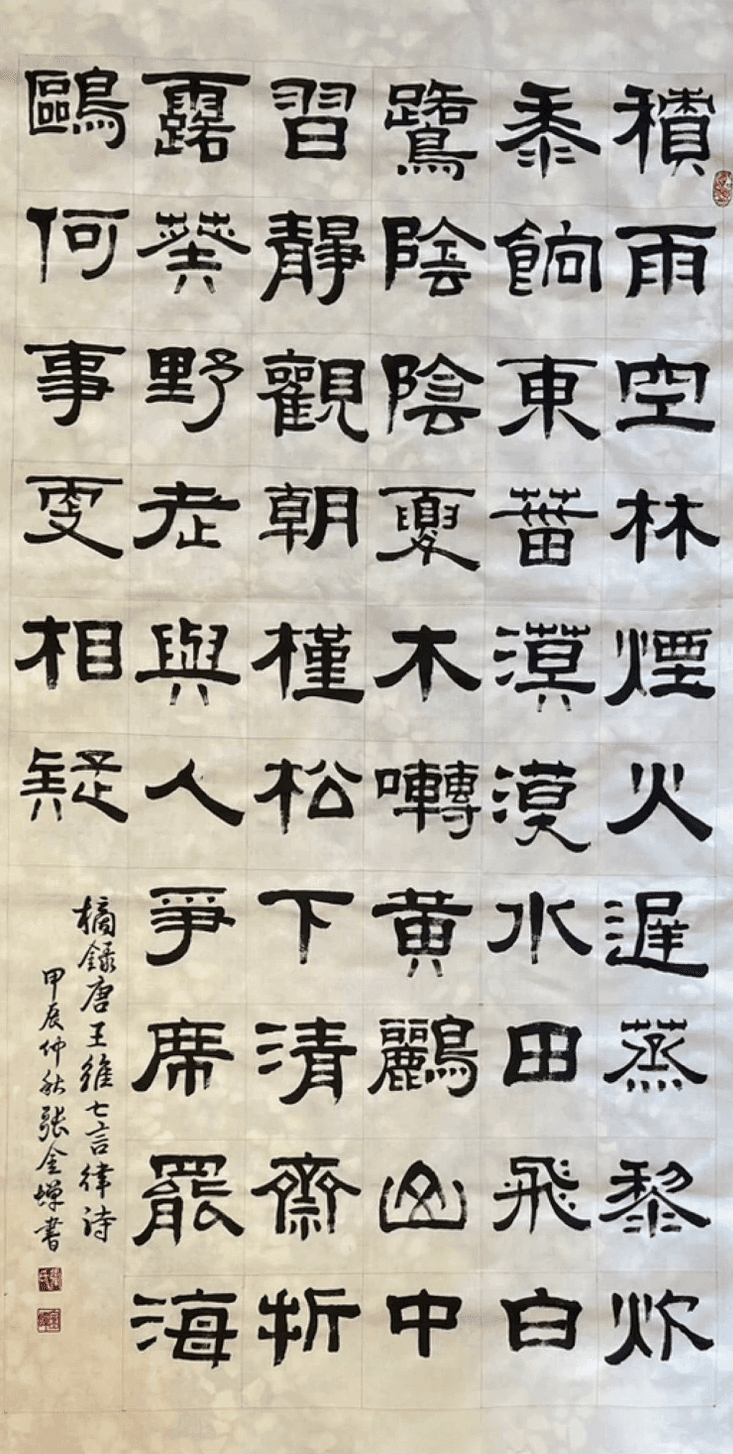 積雨空林煙火遲蒸黎炊
黍餉東菑漠漠水田飛白
鷺陰陰夏木囀黃鸝山中
習靜觀朝槿松下清齋折
露葵野老與人爭席罷海
鷗何事更相疑
摘錄唐王維七言律詩
甲辰仲秋張金嬋書